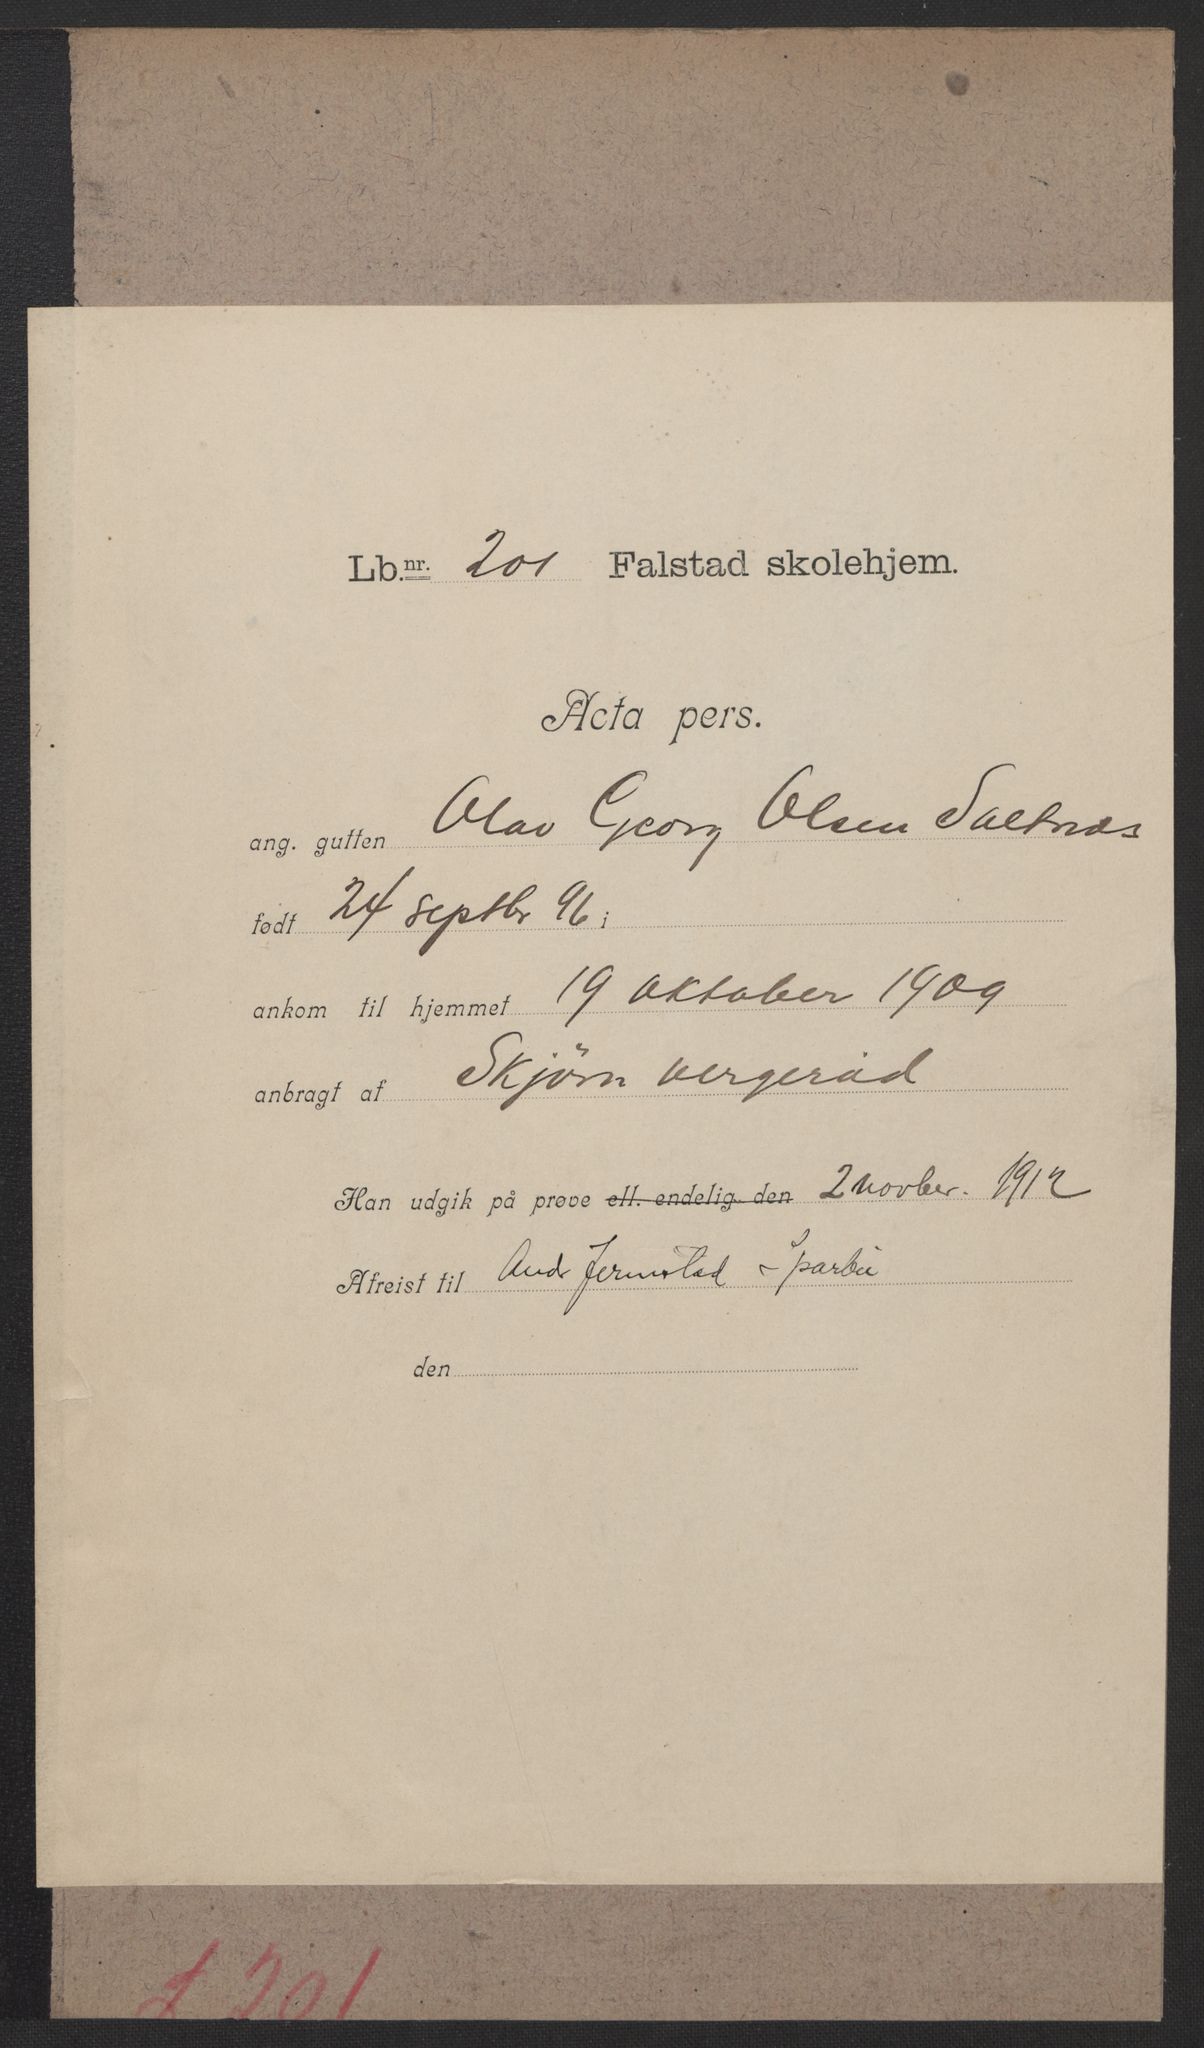 Lb.nr. 201 Falstad skolehjem.
Acta pers.
ang. gutten Olav Georg Olsen Saltnes
født 24 septbr 96 i
ankom til hjemmet 19 oktober 1909
anbragt af Skjörn vergeråd
Han udgik på prøve ell. endelig den 2 novber. 1912
Afreist til And. Jermstad - Sparbu
den
L 201